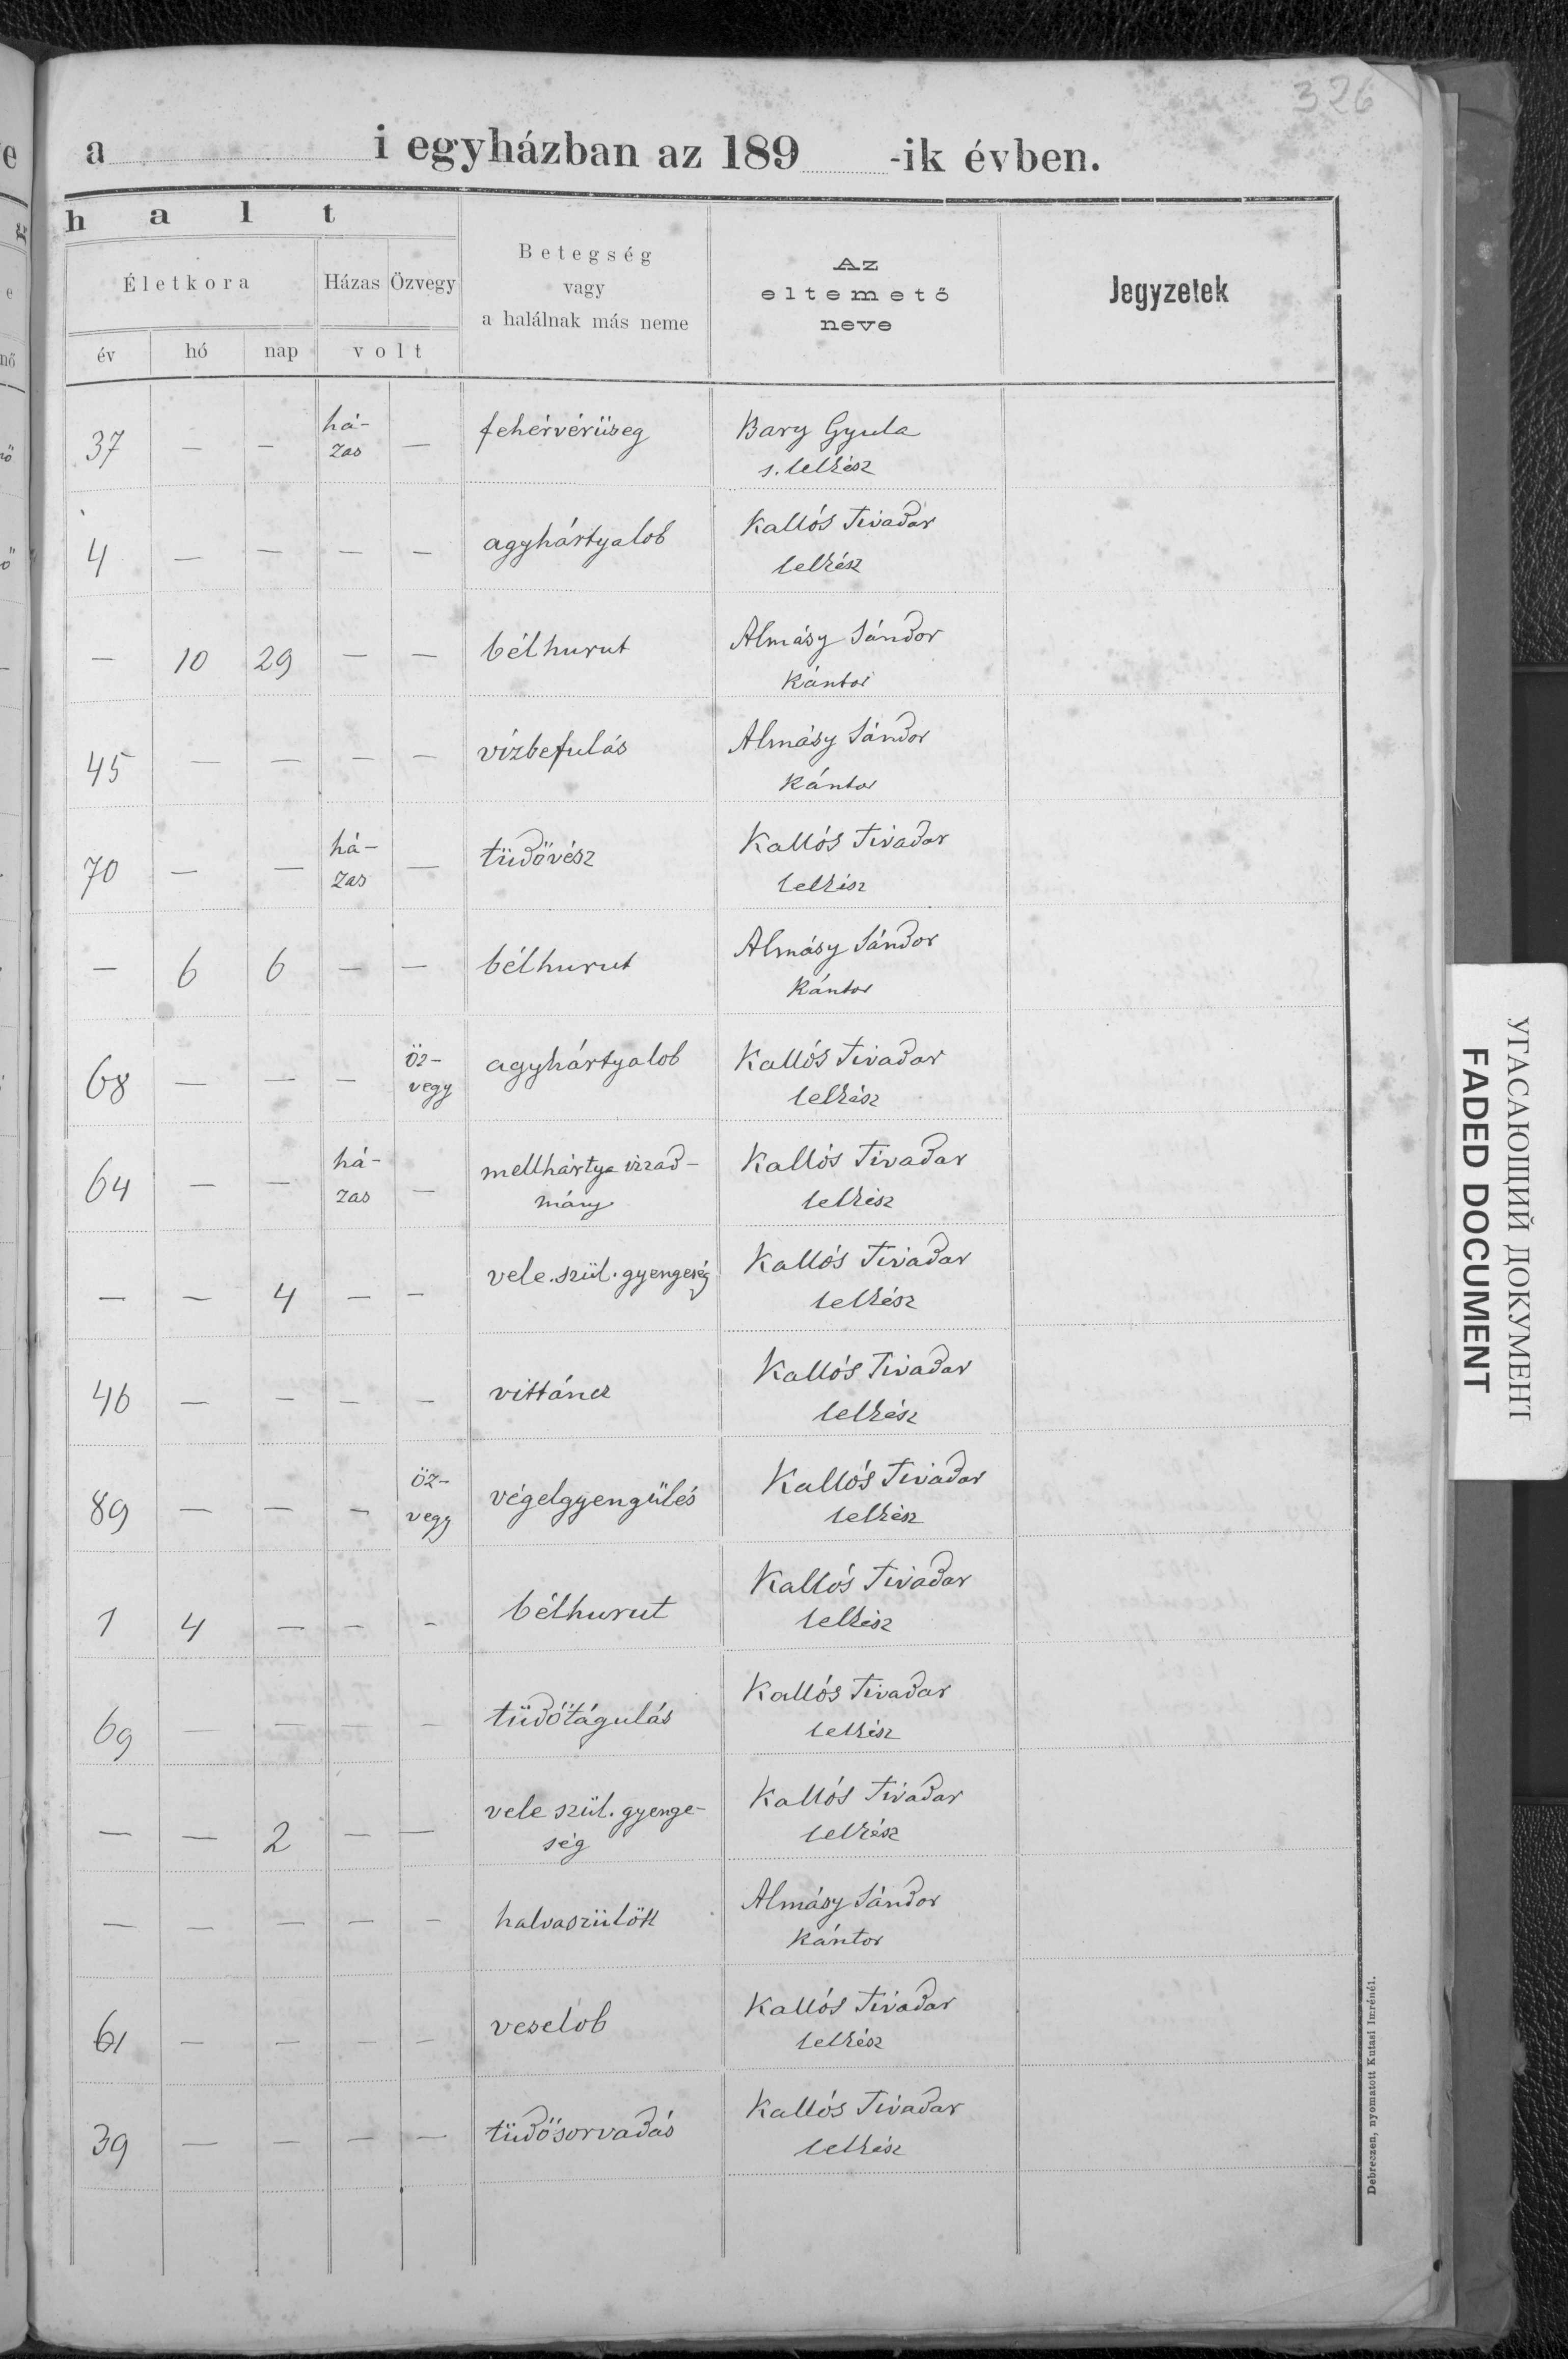 326
a i egyházban az 189 -ik évben.
h a l t
Életkora
Házas Özvegy
év hó nap volt
Betegség
vagy
a halálnak más neme
Az
eltemető
neve
Jegyzetek
37 — — há-
zas — fehérvérüseg Bary Gyula
s. lelkész
4 — — — — agyhártyalob Kallós Tivadar
lelkész
— 10 29 — — bélhurut Almásy Sándor
Kántor
45 — — — — vízbefulás Almásy Sándor
Kántor
70 — — há-
zas — tüdővész Kallós Tivadar
lelkész
— 6 6 — — bélhurut Almásy Sándor
Kántor
68 — — — öz-
vegy agyhártyalob Kallós Tivadar
lelkész
64 — — há-
zas — mellhártya izzad-
mány Kallós Tivadar
lelkész
— — 4 — — vele.szül.gyengeség Kallós Tivadar
lelkész
46 — — — — vittáncz Kallós Tivadar
lelkész
89 — — — öz-
vegy végelgyengülés Kallós Tivadar
lelkész
1 4 — — — bélhurut Kallós Tivadar
lelkész
69 — — — — tüdőtágulás Kallós Tivadar
lelkész
— — 2 — — vele szül. gyenge-
ség Kallós Tivadar
lelkész
— — — — — halvaszülött Almásy Sándor
Kántor
61 — — — — veselob Kallós Tivadar
lelkész
39 — — — — tüdősorvadás Kallós Tivadar
lelkész
Debreczen, nyomatott Kutasi Imrénél.
УГАСАЮЩИЙ ДОКУМЕНТ
FADED DOCUMENT